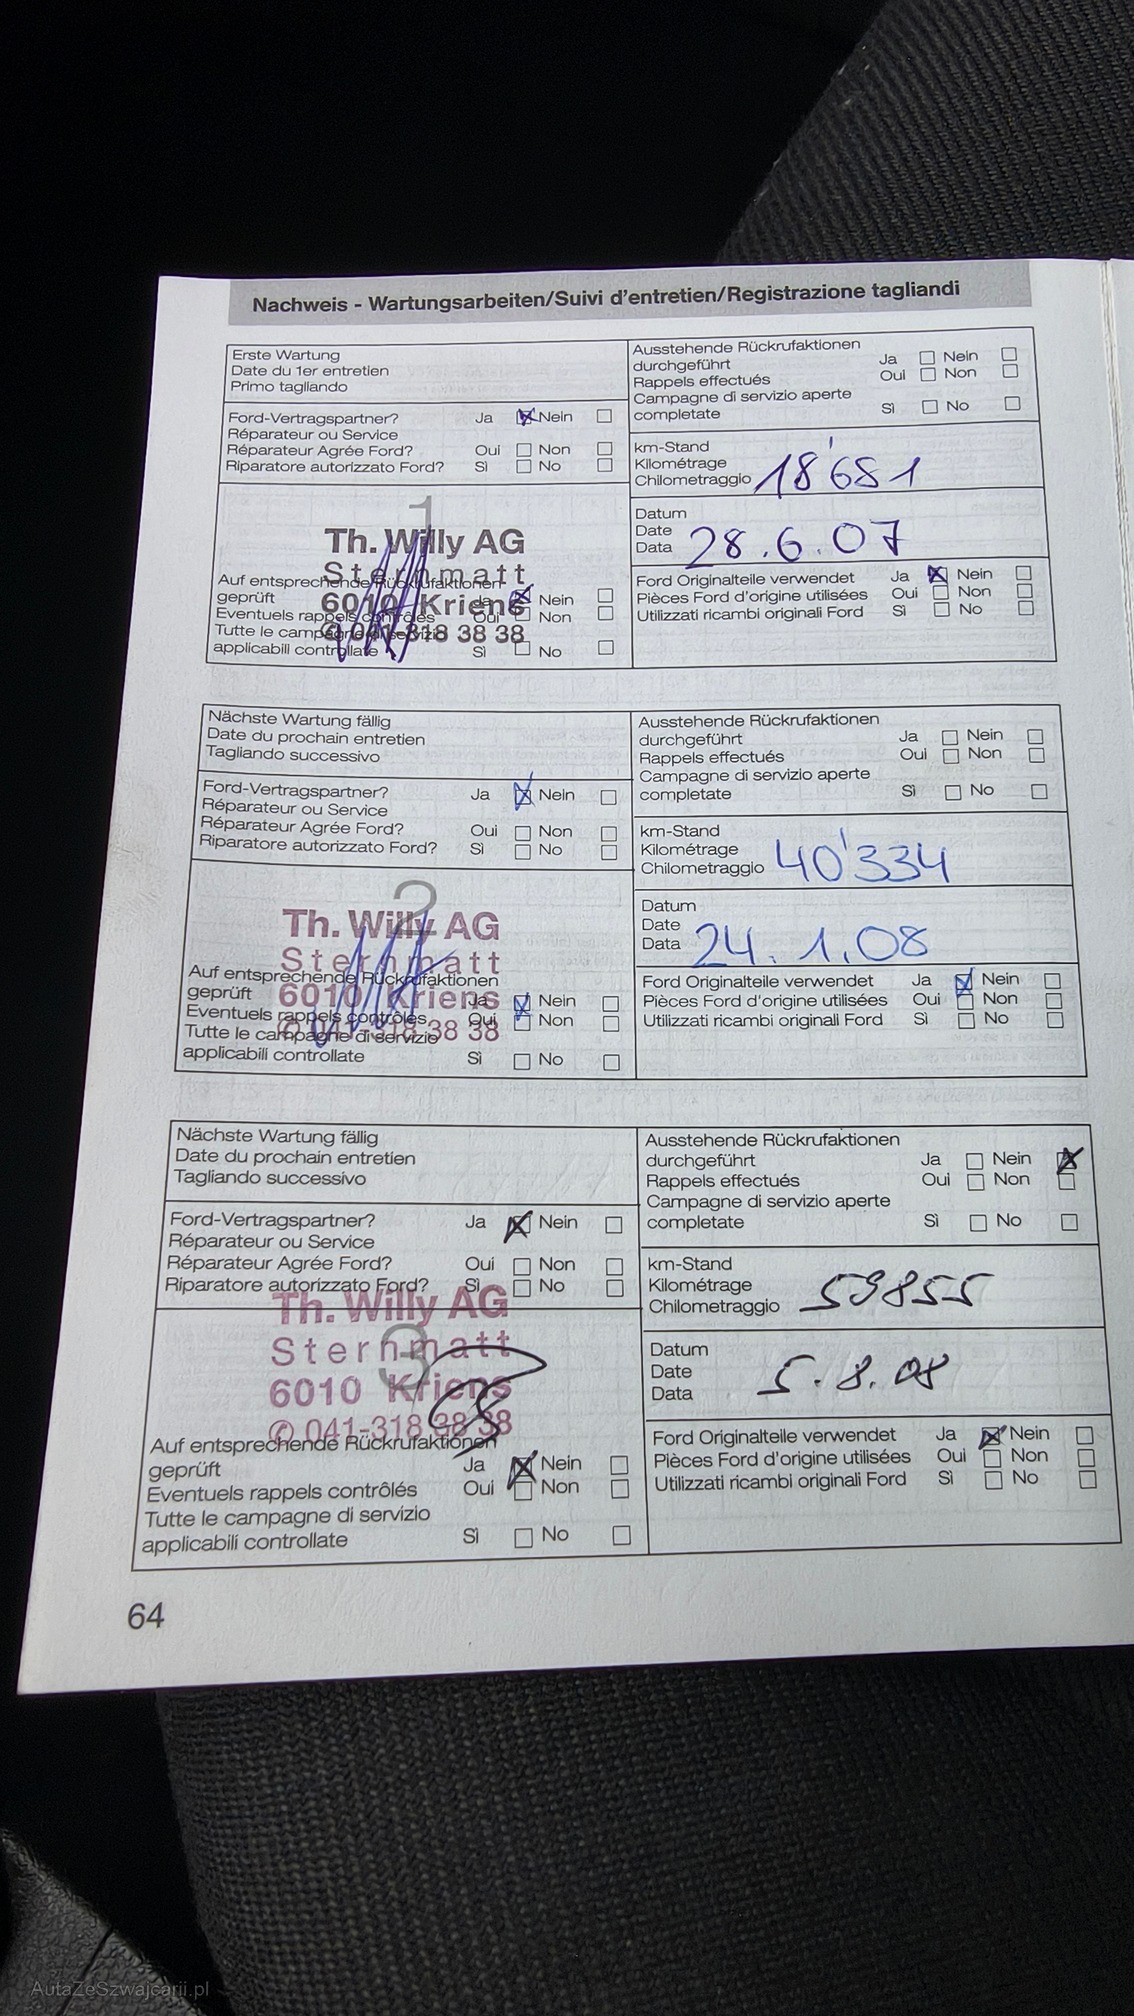 Nachweis - Wartungsarbeiten/Suivi d'entretien/Registrazione tagliandi
Erste Wartung
Date du 1er entretien
Primo tagliando
Ford-Vertragspartner? Ja Nein
Réparateur ou Service
Réparateur Agrée Ford? Oui Non
Riparatore autorizzato Ford? Sì No
1
Th. Willy AG
Sternmatt
6010 Kriens
✆ 041-318 38 38
Auf entsprechende Rückrufaktionen
geprüft Ja Nein
Eventuels rappels contrôlés Oui Non
Tutte le campagne di servizio
applicabili controllate Sì No
Ausstehende Rückrufaktionen
durchgeführt Ja Nein
Rappels effectués Oui Non
Campagne di servizio aperte
completate Sì No
km-Stand
Kilométrage
Chilometraggio 18'681
Datum
Date
Data 28.6.07
Ford Originalteile verwendet Ja Nein
Pièces Ford d'origine utilisées Oui Non
Utilizzati ricambi originali Ford Sì No
Nächste Wartung fällig
Date du prochain entretien
Tagliando successivo
Ford-Vertragspartner? Ja Nein
Réparateur ou Service
Réparateur Agrée Ford? Oui Non
Riparatore autorizzato Ford? Sì No
2
Th. Willy AG
Sternmatt
6010 Kriens
✆ 041-318 38 38
Auf entsprechende Rückrufaktionen
geprüft Ja Nein
Eventuels rappels contrôlés Oui Non
Tutte le campagne di servizio
applicabili controllate Sì No
Ausstehende Rückrufaktionen
durchgeführt Ja Nein
Rappels effectués Oui Non
Campagne di servizio aperte
completate Sì No
km-Stand
Kilométrage
Chilometraggio 40'334
Datum
Date
Data 24.1.08
Ford Originalteile verwendet Ja Nein
Pièces Ford d'origine utilisées Oui Non
Utilizzati ricambi originali Ford Sì No
Nächste Wartung fällig
Date du prochain entretien
Tagliando successivo
Ford-Vertragspartner? Ja Nein
Réparateur ou Service
Réparateur Agrée Ford? Oui Non
Riparatore autorizzato Ford? Sì No
3
Th. Willy AG
Sternmatt
6010 Kriens
✆ 041-318 38 38
Auf entsprechende Rückrufaktionen
geprüft Ja Nein
Eventuels rappels contrôlés Oui Non
Tutte le campagne di servizio
applicabili controllate Sì No
Ausstehende Rückrufaktionen
durchgeführt Ja Nein
Rappels effectués Oui Non
Campagne di servizio aperte
completate Sì No
km-Stand
Kilométrage
Chilometraggio 59855
Datum
Date
Data 5.8.08
Ford Originalteile verwendet Ja Nein
Pièces Ford d'origine utilisées Oui Non
Utilizzati ricambi originali Ford Sì No
64
AutaZeSzwajcarii.pl